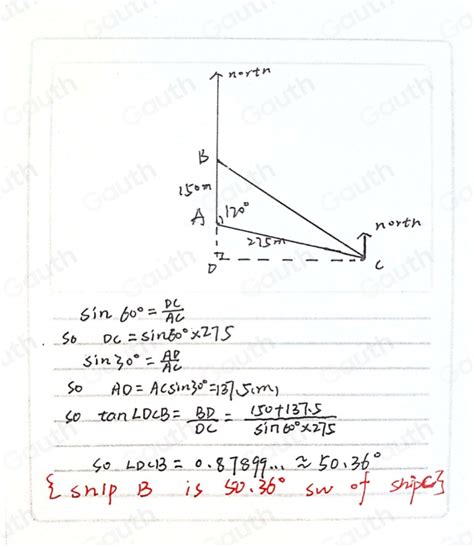 north
B
150m
A 120°
north
275m
D
C
sin 60° = DC/AC
So DC = sin60° × 275
sin 30° = AD/AC
so AD = AC sin30° = 137.5(m)
so tan∠DCB = BD/DC = (150+137.5)/(sin 60° × 275)
so ∠DCB = 0.87899... ≈ 50.36°
{ship B is 50.36° sw of shipC}
Gauth